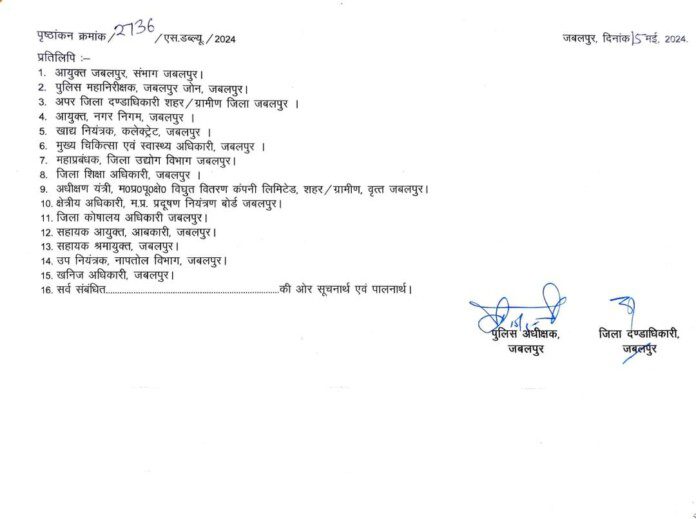 पृष्ठांकन क्रमांक/2736/एस.डब्ल्यू./2024 जबलपुर, दिनांक 15 मई, 2024.
प्रतिलिपि :–
1. आयुक्त जबलपुर, संभाग जबलपुर।
2. पुलिस महानिरीक्षक, जबलपुर जोन, जबलपुर।
3. अपर जिला दण्डाधिकारी शहर/ग्रामीण जिला जबलपुर ।
4. आयुक्त, नगर निगम, जबलपुर ।
5. खाद्य नियंत्रक, कलेक्ट्रेट, जबलपुर ।
6. मुख्य चिकित्सा एवं स्वास्थ्य अधिकारी, जबलपुर ।
7. महाप्रबंधक, जिला उद्योग विभाग जबलपुर।
8. जिला शिक्षा अधिकारी, जबलपुर ।
9. अधीक्षण यंत्री, म0प्र0पू0क्षे0 विघुत वितरण कंपनी लिमिटेड, शहर/ग्रामीण, वृत्त जबलपुर।
10. क्षेत्रीय अधिकारी, म.प्र. प्रदूषण नियंत्रण बोर्ड जबलपुर।
11. जिला कोषालय अधिकारी जबलपुर
12. सहायक आयुक्त, आबकारी, जबलपुर।
13. सहायक श्रमायुक्त, जबलपुर।
14. उप नियंत्रक, नापतोल विभाग, जबलपुर।
15. खनिज अधिकारी, जबलपुर।
16. सर्व संबंधित..........................................................की ओर सूचनार्थ एवं पालनार्थ।
पुलिस अधीक्षक, जिला दण्डाधिकारी,
जबलपुर जबलपुर